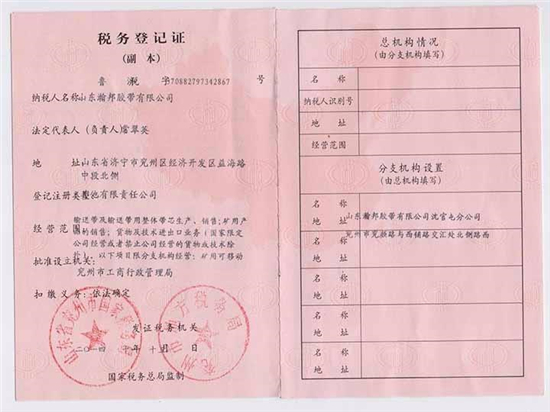 税务登记证
(副 本)
鲁 税 字370882797342867 号
纳税人名称山东瀚邦胶带有限公司
法定代表人(负责人)常翠英
地 址 山东省济宁市兖州区经济开发区益海路
中段北侧
登记注册类型其他有限责任公司
经营范围
输送带及输送带用整体带芯生产、销售;矿用产
品的销售;货物及技术进出口业务(国家限定
公司经营或者禁止公司经营的货物或技术除
外)。以下项目限分支机构经营:矿用可移动
批准设立机关:
兖州市工商行政管理局
扣缴义务:依法确定
发证税务机关
二〇一四 年 十月 日
国家税务总局监制
总机构情况
(由分支机构填写)
名 称
纳税人识别号
地 址
经营范围
分支机构设置
(由总机构填写)
名 称 山东瀚邦胶带有限公司沈官屯分公司
地 址 兖州市兖颜路与西铺路交汇处北侧路西
名 称
地 址
名 称
地 址
名 称
地 址